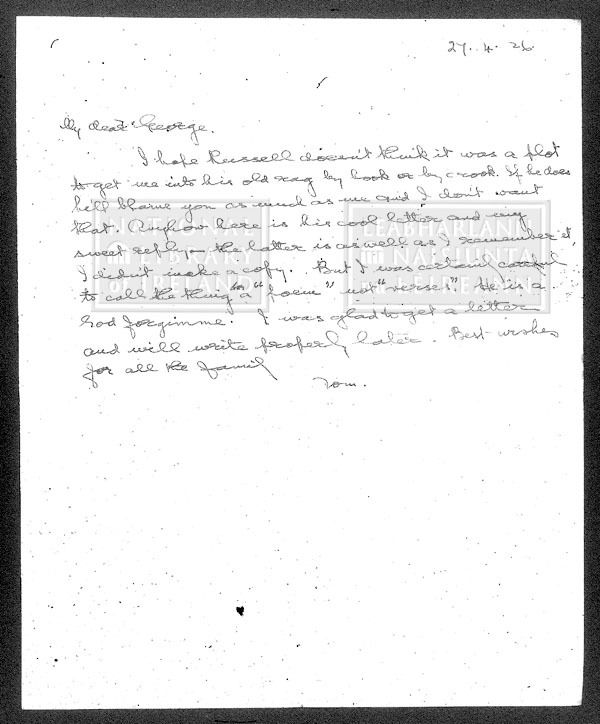 27. 4. 26.
My dear George.
I hope Russell doesn't think it was a plot
to get me into his old rag by hook or by crook. If he does
he'll blame you as much as me and I don't want
that. Anyhow here is his cool letter and my
sweet reply - the latter is as well as I remember it,
I didn't make a copy. But I was certainly careful
to call the thing a "poem" not "verses". He is a
God forgimme. I was glad to get a letter
and will write properly later. Best wishes
for all the family
Tom.
NATIONAL
LIBRARY
OF IRELAND
LEABHARLANN
NÁISIÚNTA
NA hÉIREANN